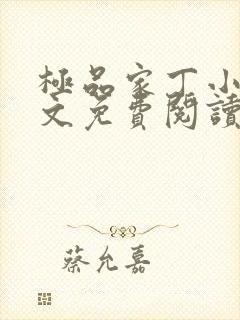 極品家丁小
文免費閱讀
蔡允嘉